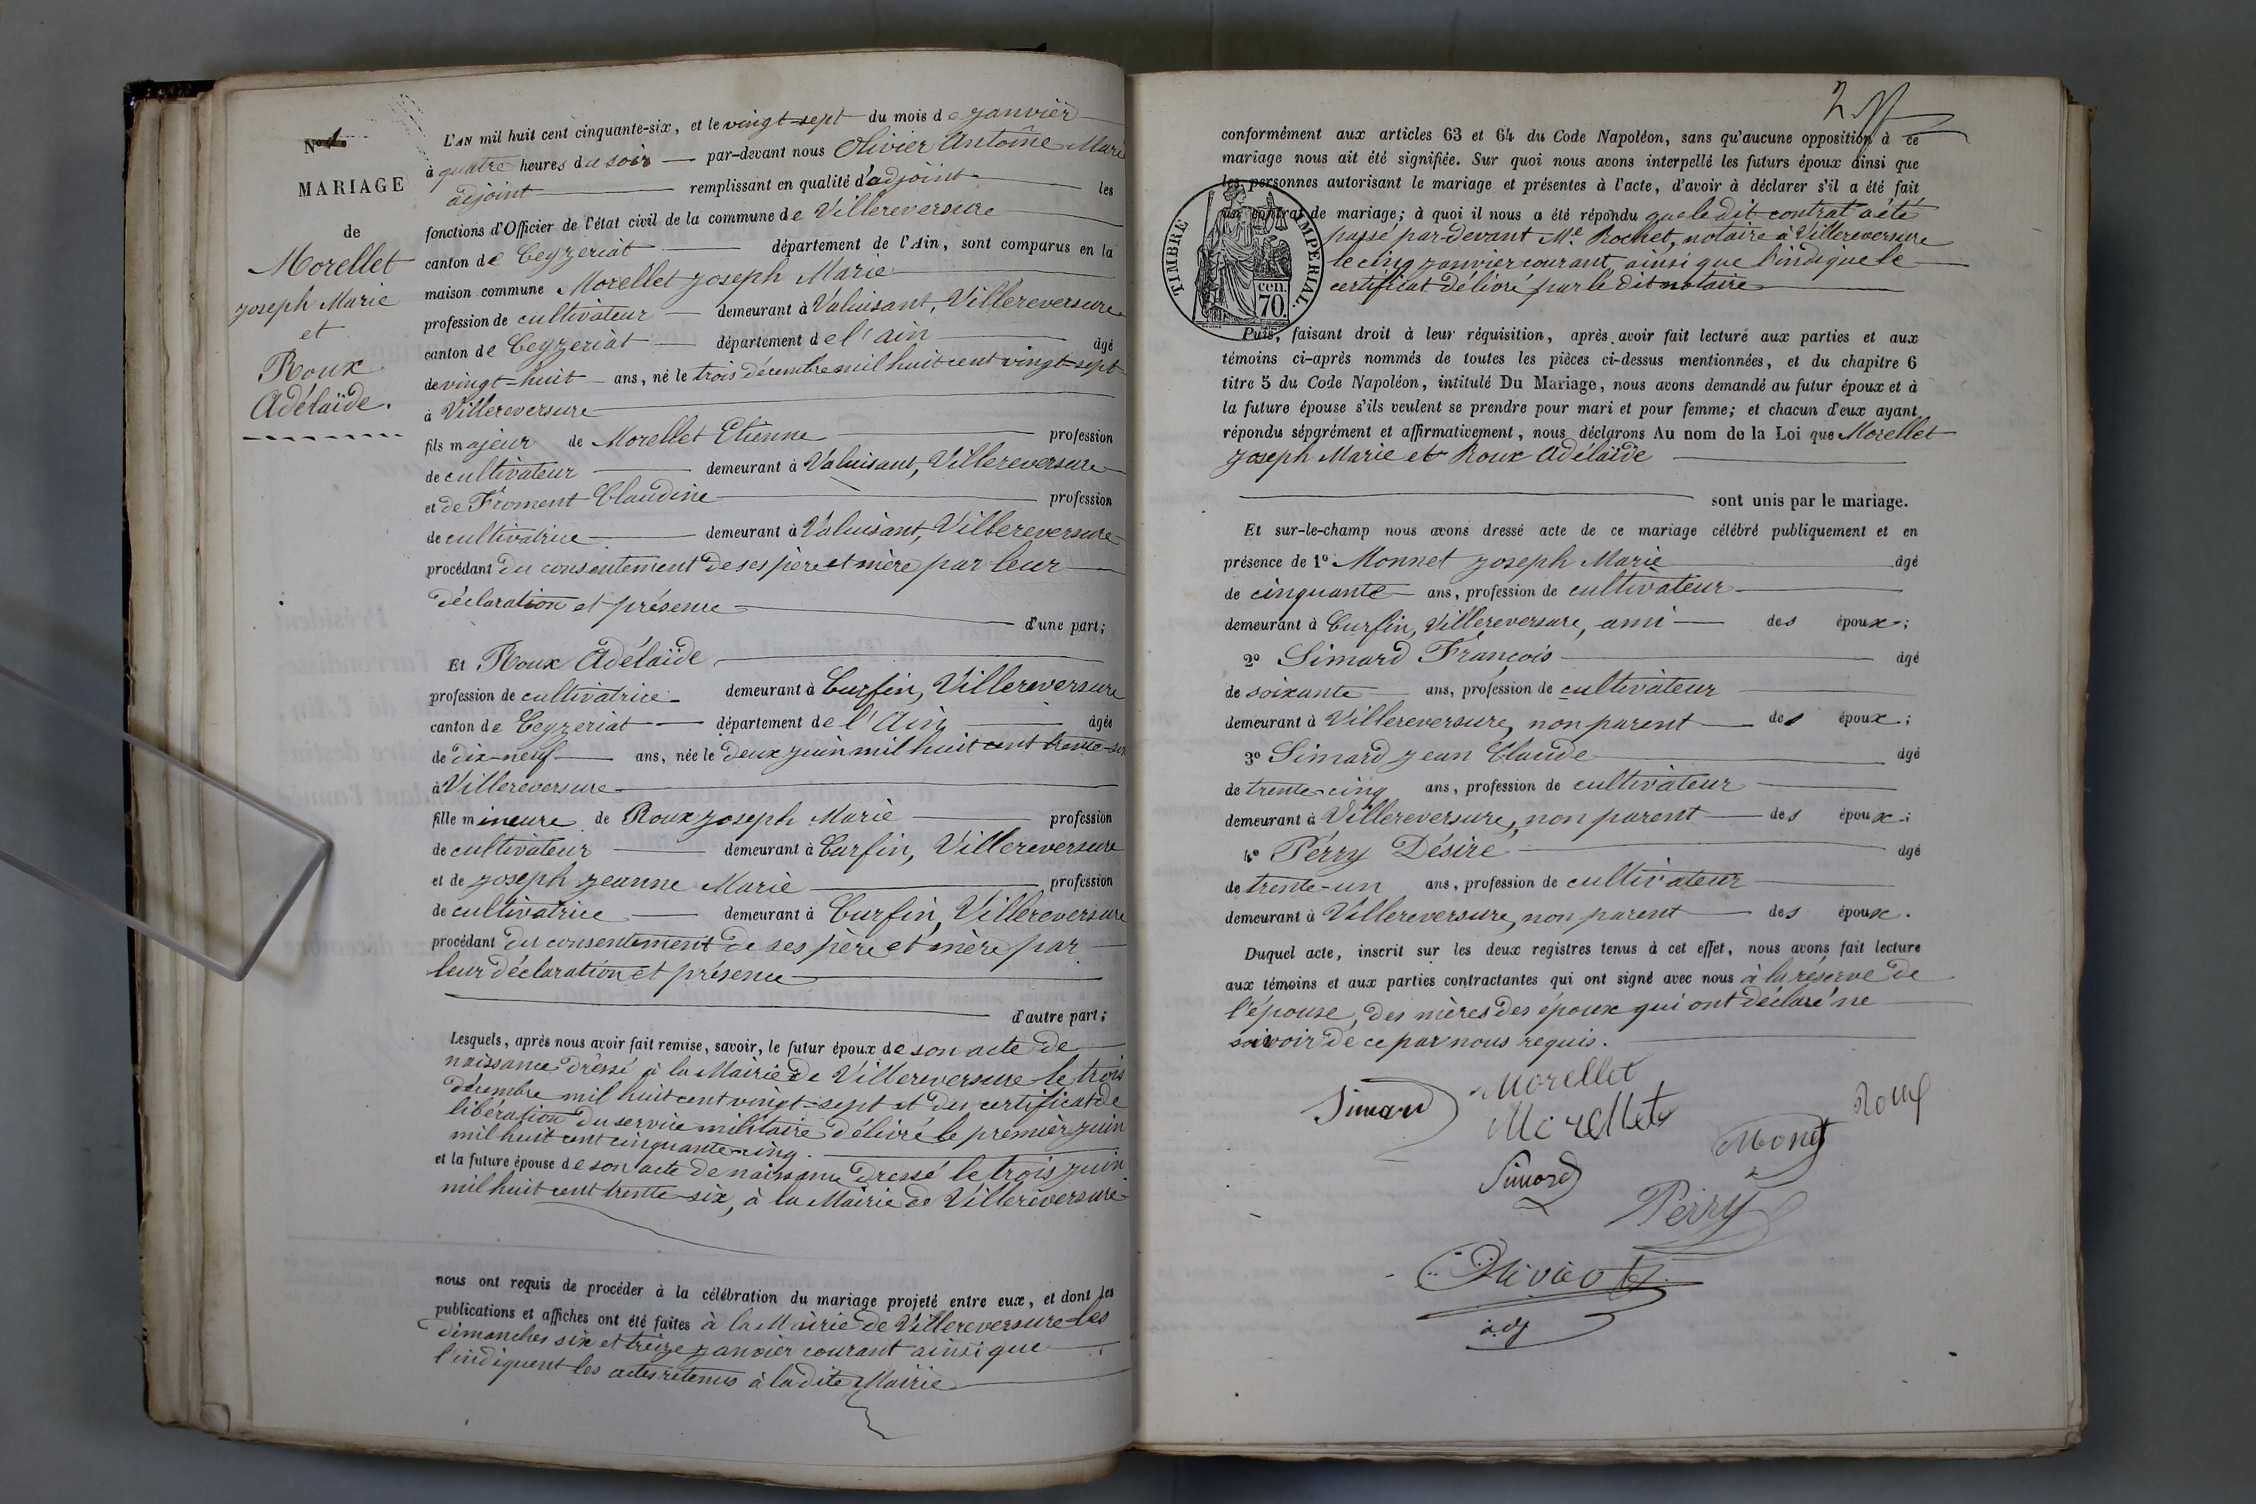 No 1.
MARIAGE
de
Morellet
Joseph Marie
et
Roux
Adélaïde.
L'AN mil huit cent cinquante-six, et le vingt-sept du mois de Janvier
à quatre heures du soir par-devant nous Olivier Antoine Marie
adjoint remplissant en qualité d'adjoint les
fonctions d'Officier de l'état civil de la commune de Villereversure
canton de Ceyzeriat département de l'Ain, sont comparus en la
maison commune Morellet Joseph Marie
profession de cultivateur demeurant à Valuisant, Villereversure
canton de Ceyzeriat département de l'ain âgé
de vingt-huit ans, né le trois décembre mil huit cent vingt-sept
à Villereversure
fils majeur de Morellet Etienne profession
de cultivateur demeurant à Valuisant, Villereversure
et de Froment Claudine profession
de cultivatrice demeurant à Valuisant, Villereversure
procédant du consentement de ses père et mère par leur
déclaration et présence
d'une part;
Et Roux Adélaïde
profession de cultivatrice demeurant à Curfin, Villereversure
canton de Ceyzeriat département de l'Ain âgée
de dix-neuf ans, née le deux juin mil huit cent trente-six
à Villereversure
fille mineure de Roux Joseph Marie profession
de cultivateur demeurant à Curfin, Villereversure
et de Joseph Jeanne Marie profession
de cultivatrice demeurant à Curfin, Villereversure
procédant du consentement de ses père et mère par
leur déclaration et présence
d'autre part;
Lesquels, après nous avoir fait remise, savoir, le futur époux de son acte de
naissance dressé à la Mairie de Villereversure le trois
décembre mil huit cent vingt-sept et du certificat de
libération du service militaire délivré le premier juin
mil huit cent cinquante-cinq.
et la future épouse de son acte de naissance dressé le trois juin
mil huit cent trente-six, à la Mairie de Villereversure
nous ont requis de procéder à la célébration du mariage projeté entre eux, et dont les
publications et affiches ont été faites à la Mairie de Villereversure les
dimanches six et treize Janvier courant ainsi que
l'indiquent les actes retenus à la dite Mairie
2
conformément aux articles 63 et 64 du Code Napoléon, sans qu'aucune opposition à ce
mariage nous ait été signifiée. Sur quoi nous avons interpellé les futurs époux ainsi que
les personnes autorisant le mariage et présentes à l'acte, d'avoir à déclarer s'il a été fait
un contrat de mariage; à quoi il nous a été répondu que le dit contrat a été
passé par-devant Me. Rochet, notaire à Villereversure
le cinq Janvier courant ainsi que l'indique le
certificat délivré par le dit notaire
TIMBRE IMPÉRIAL.
cen.
70.
Puis, faisant droit à leur réquisition, après avoir fait lecture aux parties et aux
témoins ci-après nommés de toutes les pièces ci-dessus mentionnées, et du chapitre 6
titre 5 du Code Napoléon, intitulé Du Mariage, nous avons demandé au futur époux et à
la future épouse s'ils veulent se prendre pour mari et pour femme; et chacun d'eux ayant
répondu séparément et affirmativement, nous déclarons Au nom de la Loi que Morellet
Joseph Marie et Roux Adélaïde
sont unis par le mariage.
Et sur-le-champ nous avons dressé acte de ce mariage célébré publiquement et en
présence de 1º Monnet Joseph Marie âgé
de cinquante ans, profession de cultivateur
demeurant à Curfin, Villereversure, ami des époux;
2º Simard François âgé
de soixante ans, profession de cultivateur
demeurant à Villereversure, non parent des époux;
3º Simard Jean Claude âgé
de trente-cinq ans, profession de cultivateur
demeurant à Villereversure, non parent des époux;
4º Pérry Désiré âgé
de trente-un ans, profession de cultivateur
demeurant à Villereversure, non parent des époux.
Duquel acte, inscrit sur les deux registres tenus à cet effet, nous avons fait lecture
aux témoins et aux parties contractantes qui ont signé avec nous à la réserve de
l'épouse, des mères des époux qui ont déclaré ne
savoir de ce par nous requis.
Simard Morellet
Morellet Roux
Monet
Simard
Perry
Olivier
adj